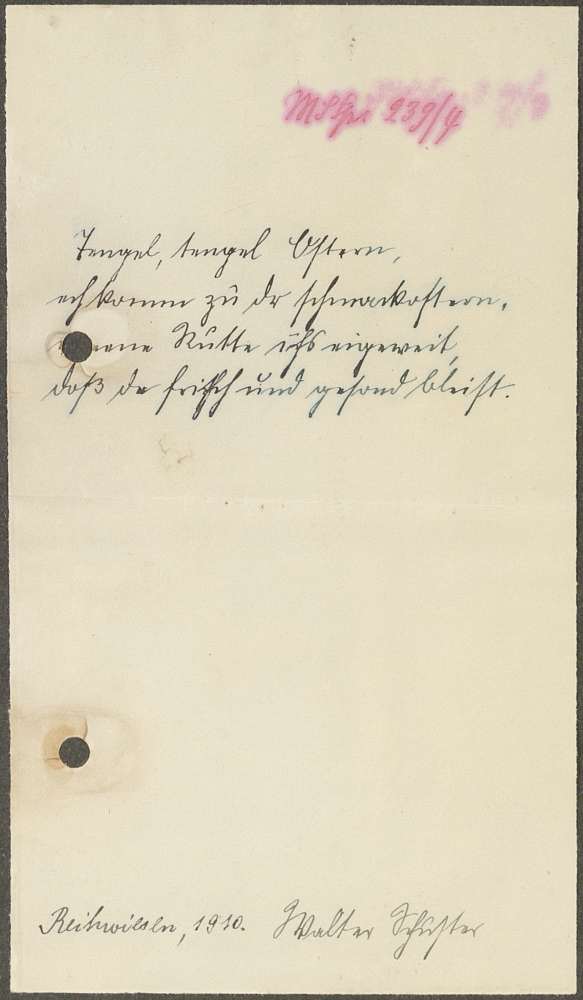 239/4
Tengel, tengel Ostern,
ech komm zu dr schmackostern.
Rutte is eigeweit,
doß de frisch und gesond bleist.
Reihwiesen, 1910. Walter Schuster